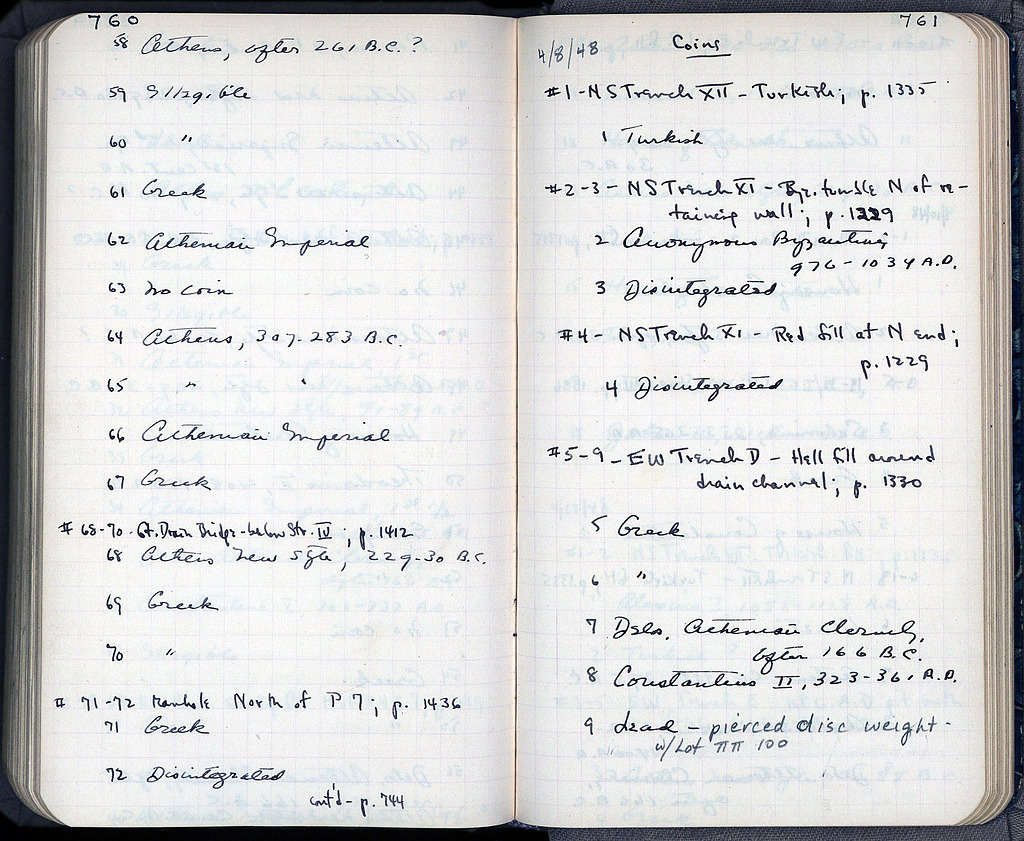 760
58 Athens, after 261 B.C.?
59 Illegible
60 "
61 Greek
62 Athenian Imperial
63 No coin
64 Athens, 307-283 B.C.
65 " "
66 Athenian Imperial
67 Greek
# 68-70 - Gt. Drain Bridge - below Str. IV; p. 1412
68 Athens New Style, 229-30 B.C.
69 Greek
70 "
# 71-72 Manhole North of P 7; p. 1436
71 Greek
72 Disintegrated
cont'd - p. 744
761
4/8/48 Coins
#1 - NS Trench XII - Turkish; p. 1335
1 Turkish
#2-3 - NS Trench XI - Byz. tumble N of re-
taining wall; p. 1229
2 Anonymous Byzantine
976-1034 A.D.
3 Disintegrated
#4 - NS Trench XI - Red fill at N end;
p. 1229
4 Disintegrated
#5-9 - EW Trench D - Hell fill around
drain channel; p. 1330
5 Greek
6 "
7 Delos, Athenian Cleruch,
after 166 B.C.
8 Constantius II, 323-361 A.D.
9 Lead - pierced disc weight -
w/Lot ΠΠ 100